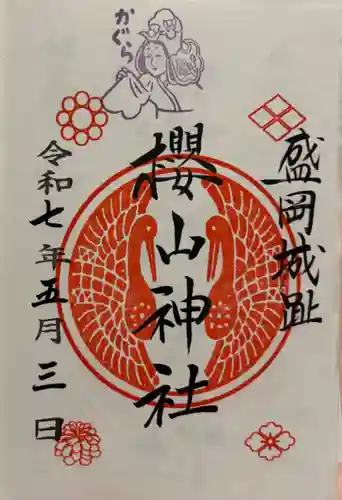 かぐら
盛岡城趾
櫻山神社
令和七年五月三日